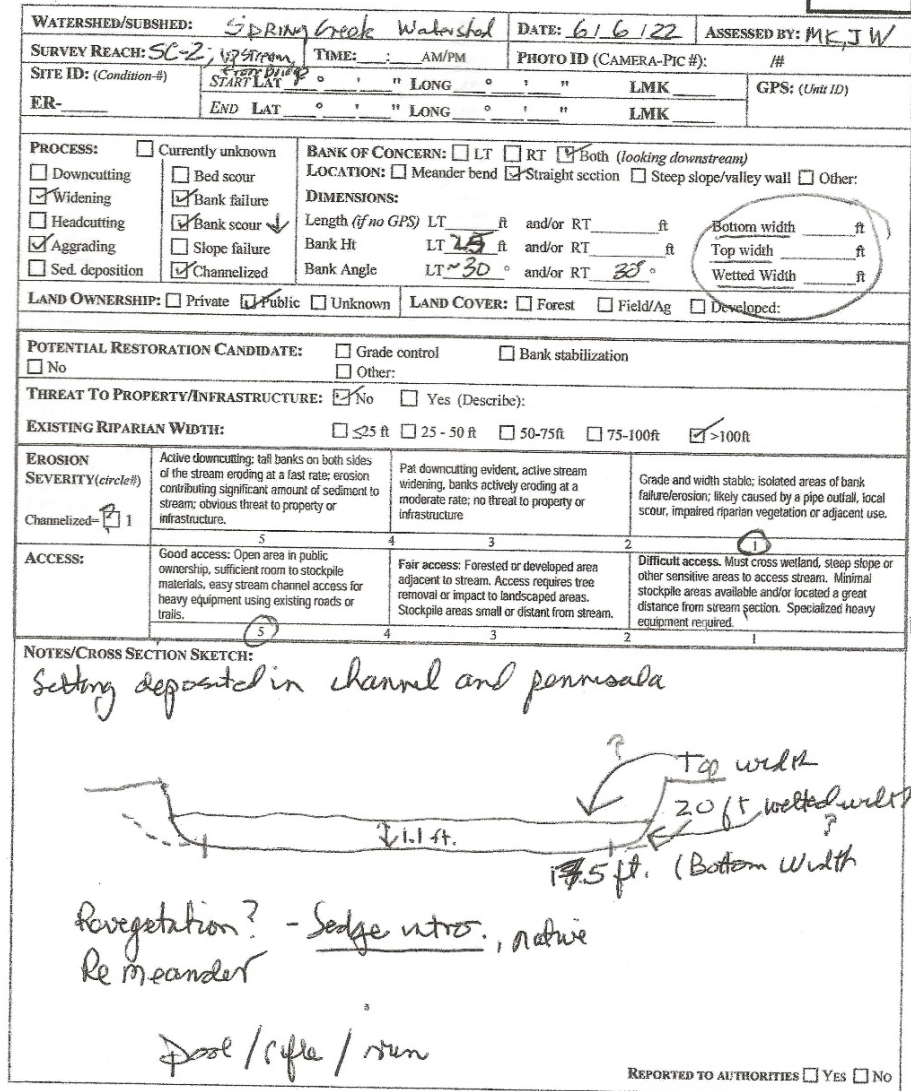 WATERSHED/SUBSHED: Spring Creek Watershed DATE: 6/6/22 ASSESSED BY: MK, JW
SURVEY REACH: SC-2, upstream, TIME: ___:___ AM/PM PHOTO ID (CAMERA-PIC #): /#
from Bridge
SITE ID: (Condition-#) START LAT ° ' " LONG ° ' " LMK GPS: (Unit ID)
ER- END LAT ° ' " LONG ° ' " LMK
PROCESS: ☐ Currently unknown BANK OF CONCERN: ☐ LT ☐ RT ☑ Both (looking downstream)
☐ Downcutting ☐ Bed scour LOCATION: ☐ Meander bend ☑ Straight section ☐ Steep slope/valley wall ☐ Other:
☑ Widening ☑ Bank failure DIMENSIONS:
☐ Headcutting ☑ Bank scour ↓ Length (if no GPS) LT ft and/or RT ft Bottom width ft
☑ Aggrading ☐ Slope failure Bank Ht LT ft and/or RT ft Top width ft
☐ Sed. deposition ☑ Channelized Bank Angle LT ~30 ° and/or RT 30 ° Wetted Width ft
LAND OWNERSHIP: ☐ Private ☑ Public ☐ Unknown LAND COVER: ☐ Forest ☐ Field/Ag ☐ Developed:
POTENTIAL RESTORATION CANDIDATE: ☐ Grade control ☐ Bank stabilization
☐ No ☐ Other:
THREAT TO PROPERTY/INFRASTRUCTURE: ☑ No ☐ Yes (Describe):
EXISTING RIPARIAN WIDTH: ☐ ≤25 ft ☐ 25 - 50 ft ☐ 50-75ft ☐ 75-100ft ☑ >100ft
EROSION SEVERITY(circle#)
Channelized= ☑ 1
Active downcutting; tall banks on both sides
of the stream eroding at a fast rate; erosion
contributing significant amount of sediment to
stream; obvious threat to property or
infrastructure.
Pat downcutting evident, active stream
widening, banks actively eroding at a
moderate rate; no threat to property or
infrastructure
Grade and width stable; isolated areas of bank
failure/erosion; likely caused by a pipe outfall, local
scour, impaired riparian vegetation or adjacent use.
5 4 3 2 1
ACCESS:
Good access: Open area in public
ownership, sufficient room to stockpile
materials, easy stream channel access for
heavy equipment using existing roads or
trails.
Fair access: Forested or developed area
adjacent to stream. Access requires tree
removal or impact to landscaped areas.
Stockpile areas small or distant from stream.
Difficult access. Must cross wetland, steep slope or
other sensitive areas to access stream. Minimal
stockpile areas available and/or located a great
distance from stream section. Specialized heavy
equipment required.
5 4 3 2 1
NOTES/CROSS SECTION SKETCH:
deposited in channel and pennisala
?
Top width
20 ft wetted width
?
1.1 ft.
5 ft. (Bottom Width
Revegetation? - Sedge intro., native
Re meander
Pool / rifle / run
REPORTED TO AUTHORITIES ☐ YES ☐ NO